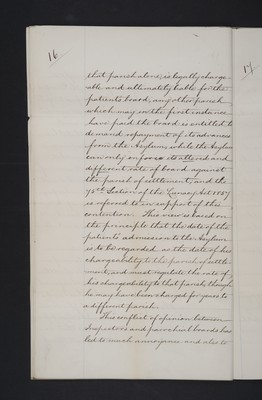 16
17
that parish alone, is legally charge-
able and ultimately liable for the
patients board; any other parish
which may in the first instance
have paid the board is entitled to
demand repayment of its advances
from the Asylum, while the Asylum
can only enforce its altered and
different rate of board against
the parish of settlement; and the
75th Section of the Lunacy Act 1857
is referred to in support of the
contention. This view is based on
the principle that the date of the
patients admission to the Asylum
is to be regarded as the date of his
chargeability to the parish of settle-
ment, and must regulate the rate of
his chargeability to that parish, though
he may have been charged for years to
a different parish.
This conflict of opinion between
Inspectors and parochial boards has
led to much annoyance and also to